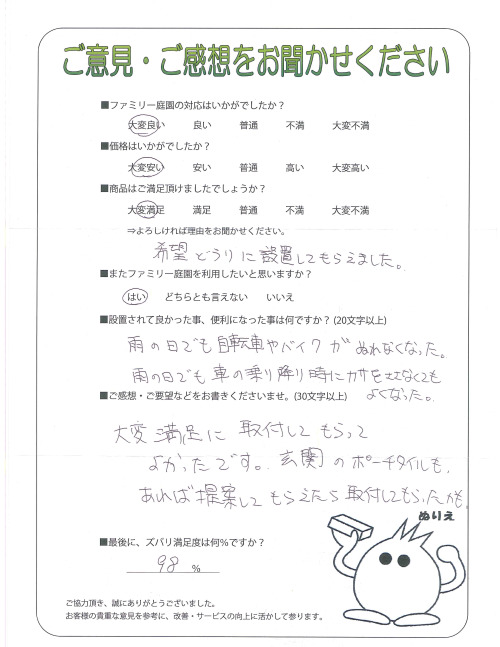 ご意見・ご感想をお聞かせください
■ファミリー庭園の対応はいかがでしたか？
大変良い 良い 普通 不満 大変不満
■価格はいかがでしたか？
大変安い 安い 普通 高い 大変高い
■商品はご満足頂けましたでしょうか？
大変満足 満足 普通 不満 大変不満
⇒よろしければ理由をお聞かせください。
希望どうりに設置してもらえました。
■またファミリー庭園を利用したいと思いますか？
はい どちらとも言えない いいえ
■設置されて良かった事、便利になった事は何ですか？(20文字以上)
雨の日でも自転車やバイクがぬれなくなった。
雨の日でも車の乗り降り時にカサをささなくても
よくなった。
■ご感想・ご要望などをお書きくださいませ。(30文字以上)
大変満足に取付してもらって
よかったです。玄関のポーチタイルも、
あれば提案してもらえたら取付してもらったかも。
ぬりえ
■最後に、ズバリ満足度は何％ですか？
98 ％
ご協力頂き、誠にありがとうございました。
お客様の貴重な意見を参考に、改善・サービスの向上に活かして参ります。